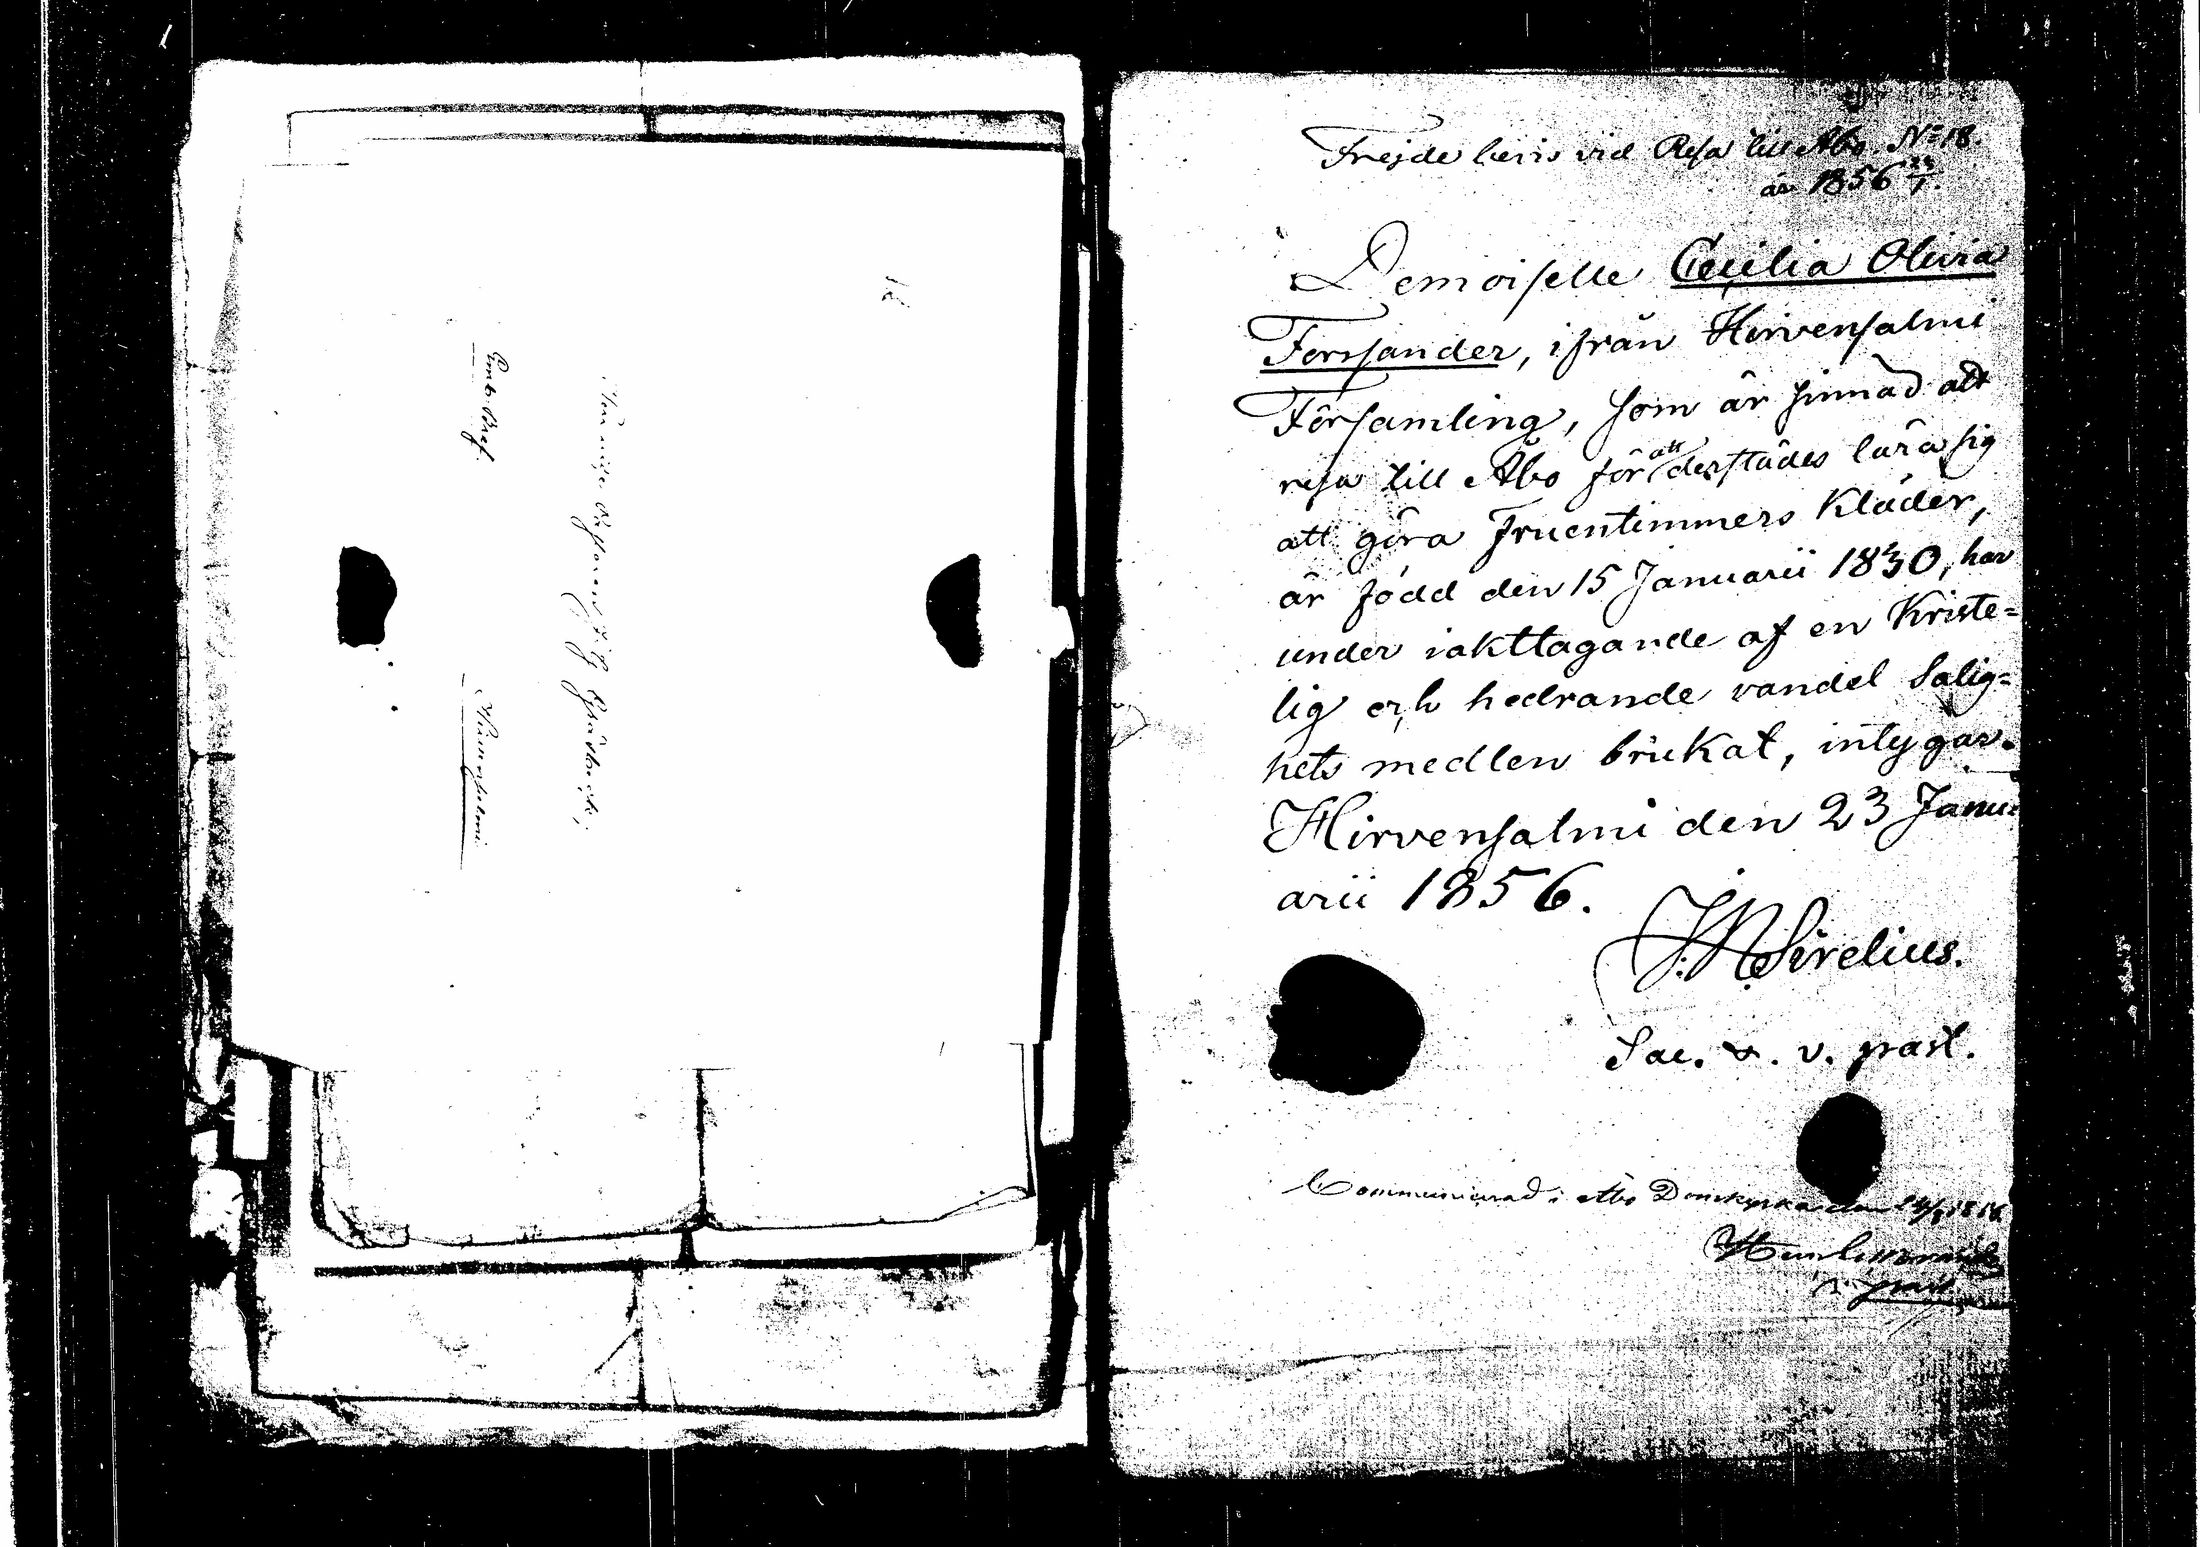 Embs. Bref.
Hirvensalmi
Frejdebevis vid Resa till Åbo. No 18.
år 1856 23/1.
Demoiselle Cecilia Olivia
Forssander, ifrån Hirvensalmi
Församling, som är sinnad att
resa till Åbo för att derstädes lära sig
att göra Fruentimmers Kläder,
är född den 15 Januarii 1830, har
under iakttagande af en Kriste=
lig och hedrande vandel Salig=
hets medlen brukat, intygar.
Hirvensalmi den 23 Janu=
arii 1856.
J. N. Sirelius.
Sac. & v. past.
Communicerad i Åbo Domkyrka den